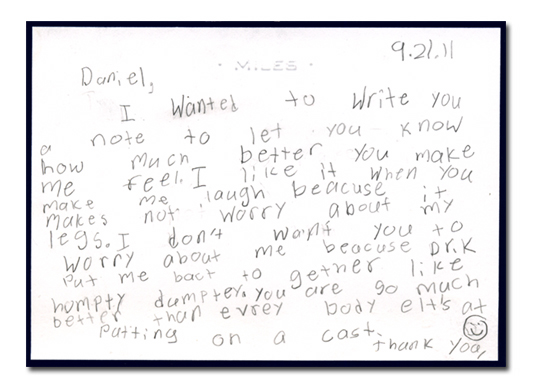 9.21.11
· MILES ·
Daniel,
I Wanted to Write you
a note to let you know
how much better you make
me feel. I like it when you
make me laugh beacuse it
makes not worry about my
legs. I don't want you to
worry about me beacuse DR.K
put me back to gether like
humpty dumptey. you are so much
better than evrey body elts at
Putting on a cast.
thank you,